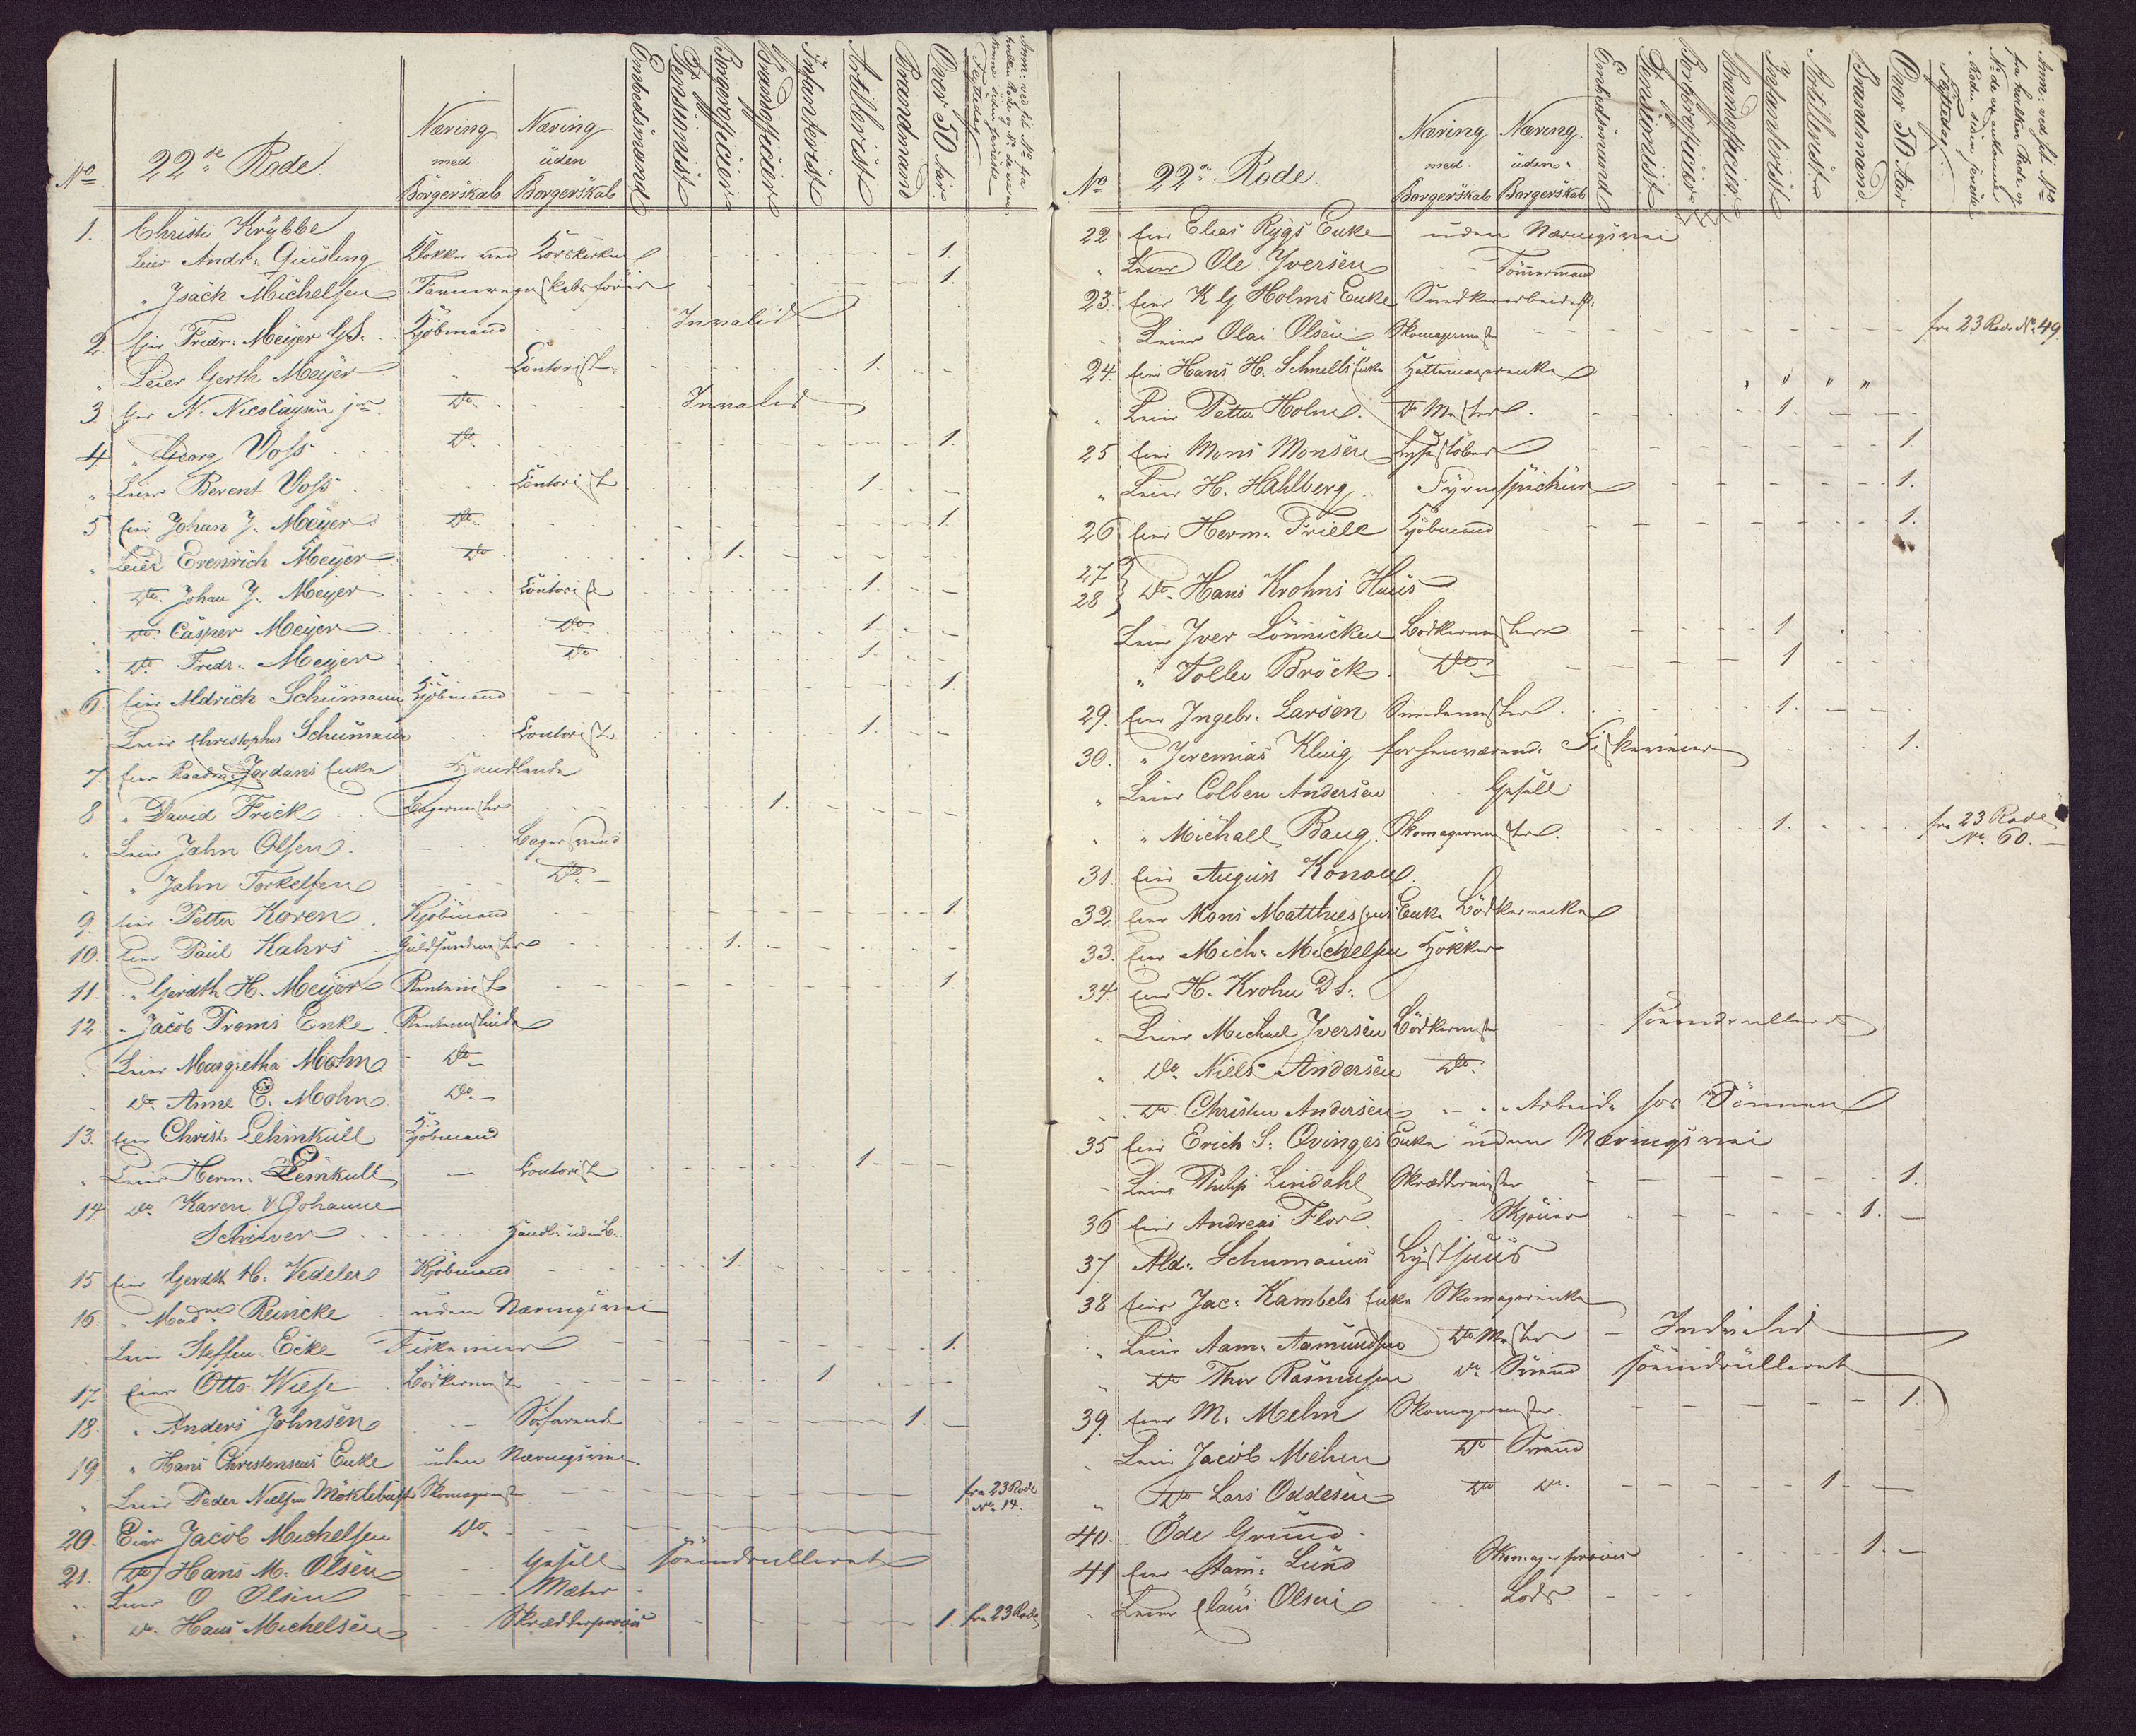 No 22de Rode Næring med Borgerskab Næring uden Borgerskab Embedsmænd Pensionist Borgerofficier Brandofficier Infanterist Artillerist Brandmand Over 50 Aar
1. Christi Krybbe
Leier Andr: Quisling Klokker ved Korskirken 1.
" Isach Michelsen 1.
2 Eier Fridr: Meyer GS. Kjöbmand Invalid
" Leier Gerth Meyer Contorist 1.
3 Eier N. Nicolaysen jor. Do Invalid
4 " Georg Voss Do 1.
" Leier Berent Voss Contorist 1.
5 Eier Johan J. Meyer Do 1.
" Leier Erenrich Meyer Do 1.
" Do Johan J. Meyer Contorist 1.
" Do Casper Meyer Do 1.
" Do Fredr: Meyer Do 1.
6. Eier Aldrich Schumann Kjöbmand 1.
Leier Christopher Schumann Contorist 1.
7 Eier Raadm: Jordans Enke Handlende
8 " David Frick Bagermester 1.
" Leier Jahn Olsen Bagersvend
" " Jahn Torkelsen Do
9. Eier Petter Koren Kjöbmand 1.
10. Eier Paul Kahrs Guldsmedmester 1.
11. " Gerdth H. Meyer Rentenist 1.
12. " Jacob Troms Enke Rentenistinde
" Leier Margretha Mohn Do
" Do Anne C. Mohn Do
13. Eier Christ: Lehmkull Kjöbmand
" Leier Herm: Lemkull Contorist 1.
14. Do Karen & Johanne
Schiwer Handl: uden B.
15 Eier Gerdth H. Vedeler Kjöbmand 1.
16. " Mad: Reincke uden Næringsvei
" Leier Steffen Ecke 1.
17 Eier Otto Wiese Bödkermester 1
18. " Anders Johnsen Söfarende 1.
19 " Hans Christensens Enke uden Næringsvei
" Leier Peder Nielsen Möklebust Skomagermester fra 23 Rode No 14.
20. Eier Jacob Michelsen Do
21. Do Hans M. Olsen Gesell söeindrulleret
" Leier O Olsen
" Do Hans Michelsen 1. fra 23 Rode
No 22de Rode Næring med Borgerskab Næring uden Borgerskab Embedsmænd Pensionist Borgerofficier Brandofficier Infanterist Artillerist Brandmand Over 50 Aar
22 Eier Elias Rygs Enke uden Næringsvei
" Leier Ole Iversen Tömmermand
23. Eier K G Holms Enke
" Leier Olai Olsen Skomagermester fra 23 Rode No 49
24 Eier Hans H. Schnells Enke Hattemagerenke
" Leier Petter Holm. Do Mester 1.
25 Eier Mons Monsen 1.
" Leier H. Hahlberg 1.
26 Eier Herm: Friele Kjöbmand 1.
27
28 } Do Hans Krohns Huus
Leier Iver Lönnicken Bödkermester 1
" Tollev Bröck Do 1
29. Eier Ingebr: Larsen Smedemester 1.
30. " Jeremias Kluig forhenværende 1.
" Leier Colben Andersen Gesell
" " Michall Baug. Skomagermester 1. fra 23 Rode No 60.
31 Eier August Konow
32 Eier Mons Matthiessens Enke Bödkerenke
33. Eier Mich: Michelsen Hökker
34. Eier H. Krohn DS.
" Leier Michael Iversen Bödkermester söeindrulleret
" Do Niels Andersen Do
" Do Christen Andersen Arbeide för Tönner
35 Eier Erich S. Qvinges Enke uden Næringsvei
Leier Philip Lindahl Skræddermester 1.
36 Eier Andreas Flor 1.
37 Ald: Schumanns Lysthuus
38 Eier Jac: Kambels Enke Skomagerenke
" Leier Aam: Aamundsen Do Mester Indvalid
" Do Thor Rasmussen Do Svend söeindrulleret
39. Eier M. Melm Skomagermester. 1.
Leier Jacob Mehm Do Svend
" Do Lars Oddesen Do Do 1
40 Öde Grund
41 Eier Aam: Lund 1.
" Leier Claus Olsen Lods